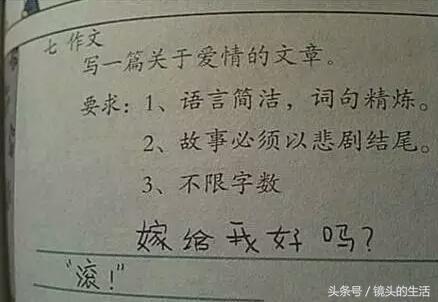 七 作文
写一篇关于爱情的文章。
要求：1、语言简洁，词句精炼。
2、故事必须以悲剧结尾。
3、不限字数
嫁给我好吗？
“滚！”
头条号／镜头的生活